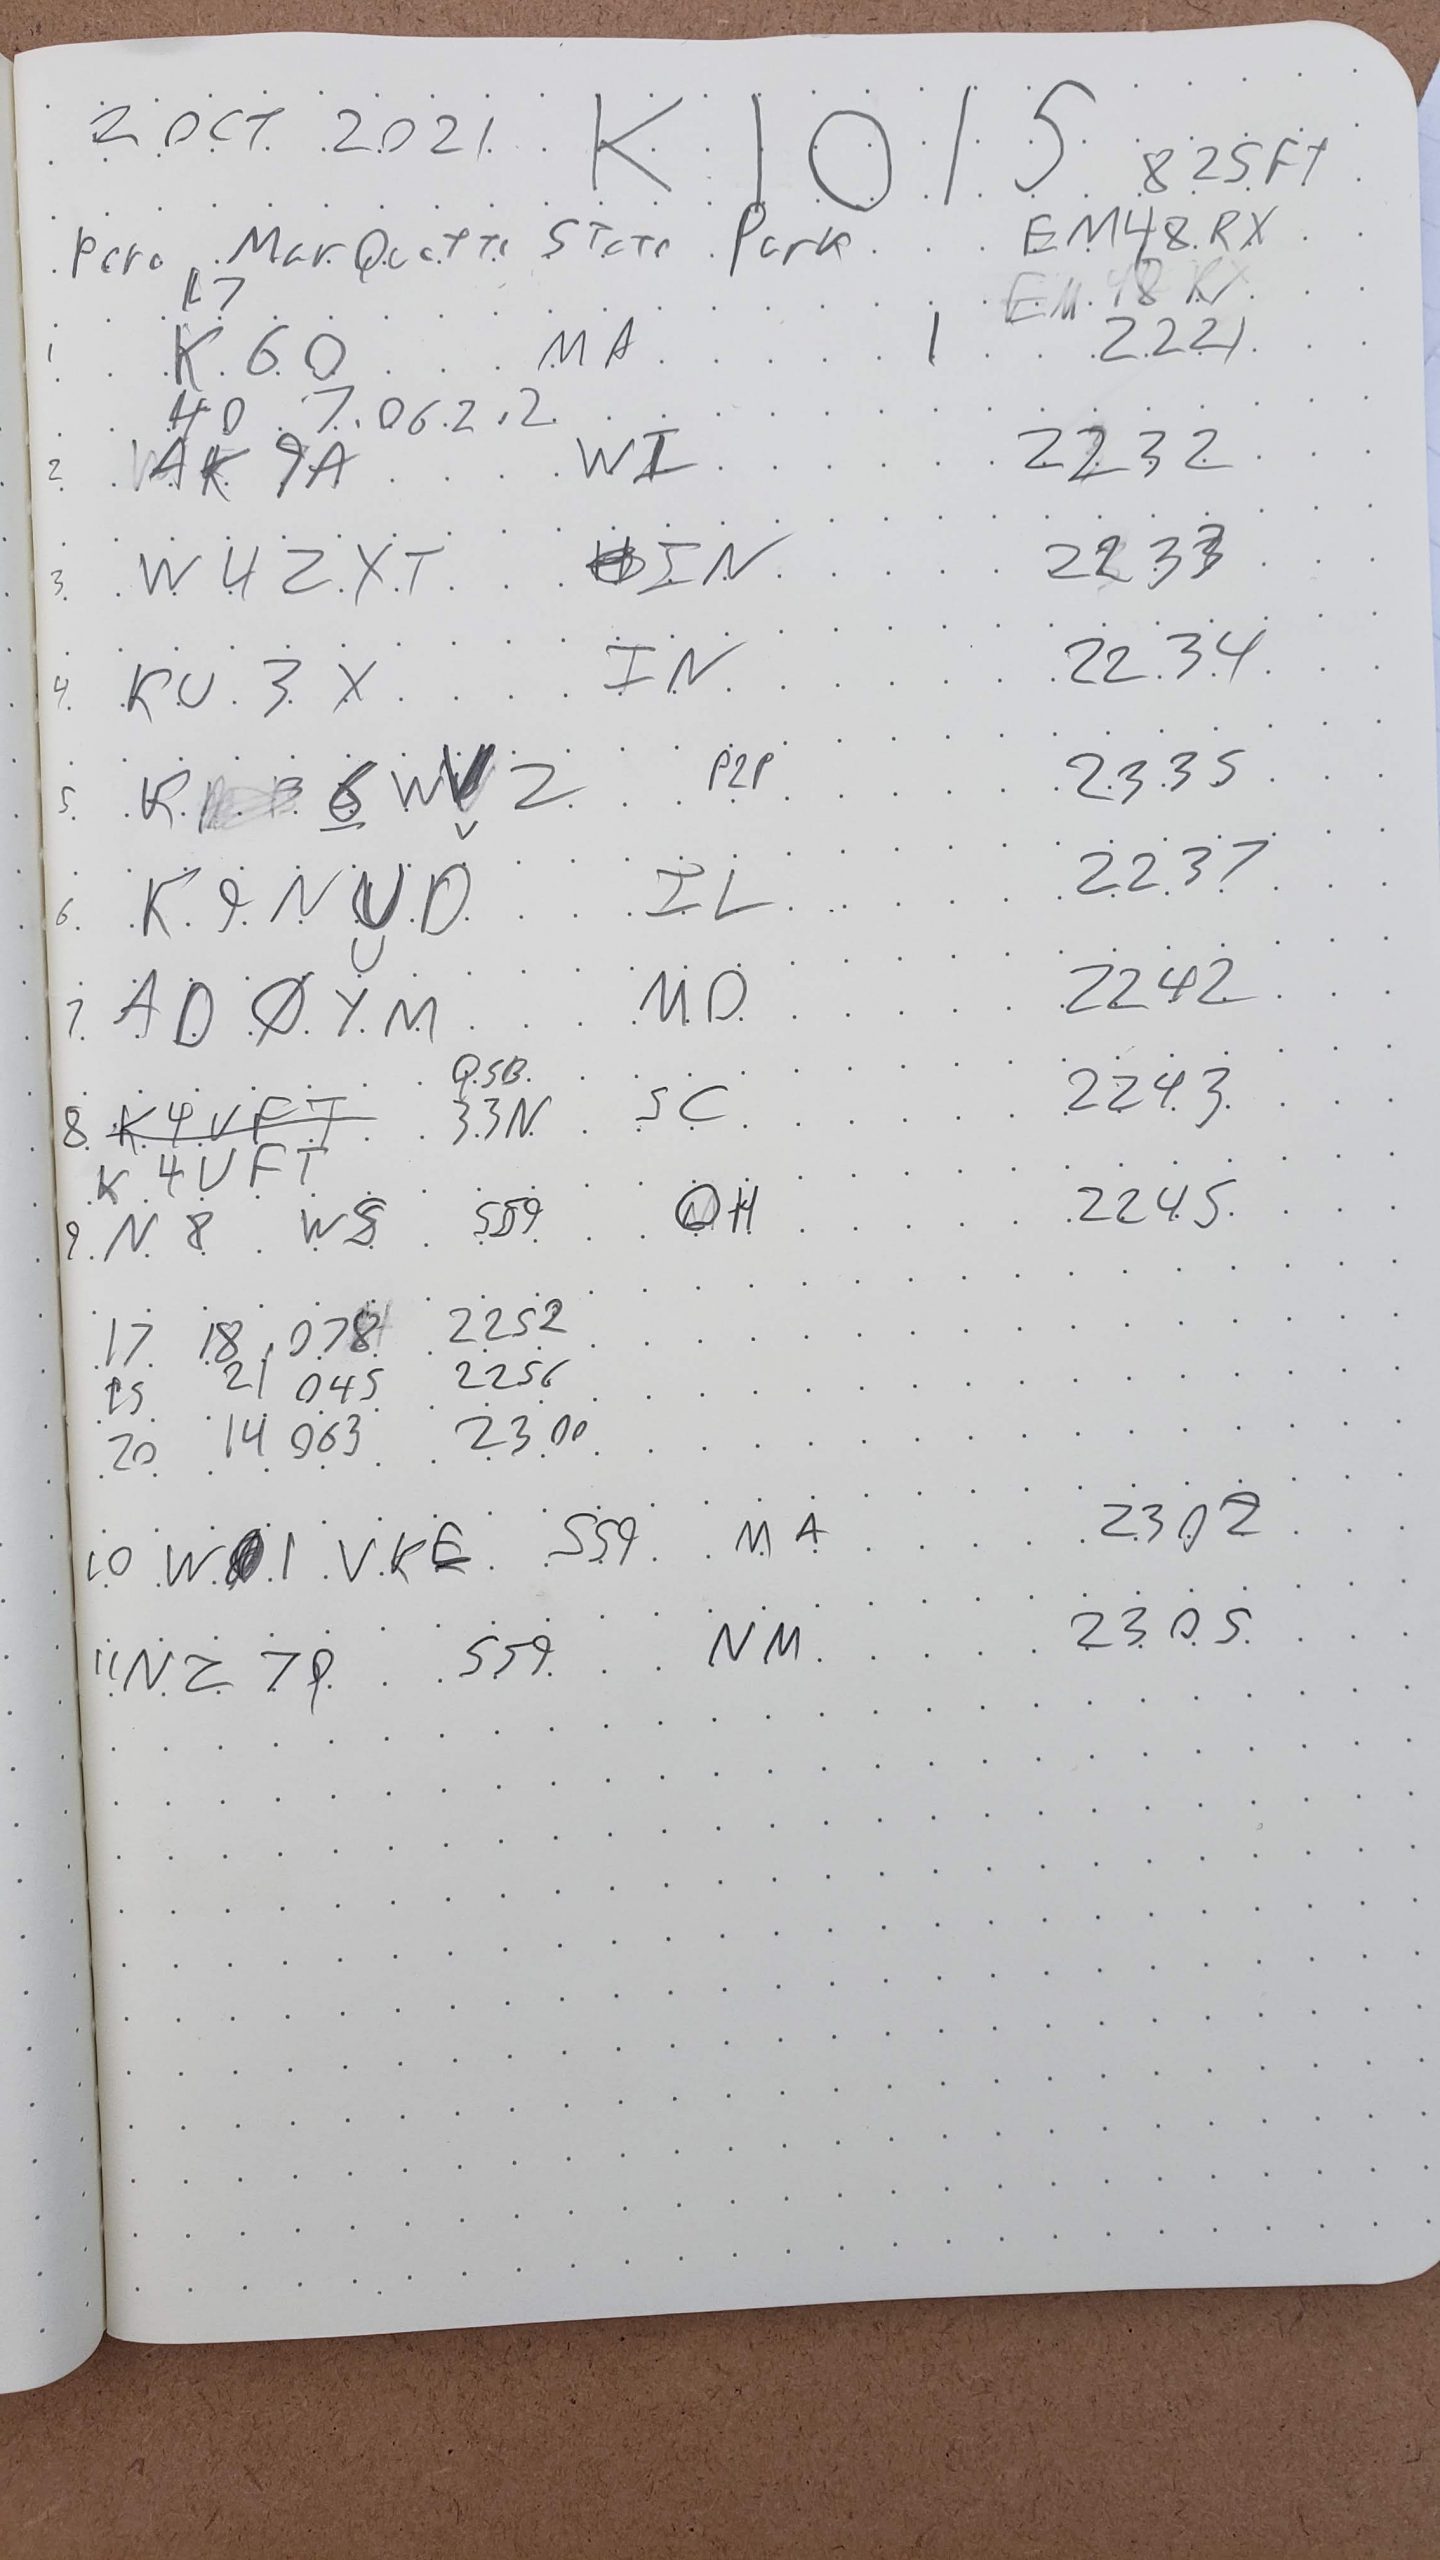 2 OCT 2021 K1015 825FT
Pere MarQuette State Park EM48RX
17 EM48RX
1 K6O MA 1 2221
40 7.062.2
2. AK9A WI 2232
3. W4ZXT IN 2233
4. KU3X IN 2234
5. K6WVZ P2P 2335
V
6. K9NUD IL 2237
U
7. ADØYM MD 2242
QSB
8. K4VFT 33N SC 2243
K4UFT
9. N8 WS 559 OH 2245
17 18.078 2252
15 21 045 2256
20 14 063 2300
10 W1VKE 559 MA 2302
11 NZ7P 559 NM 2305